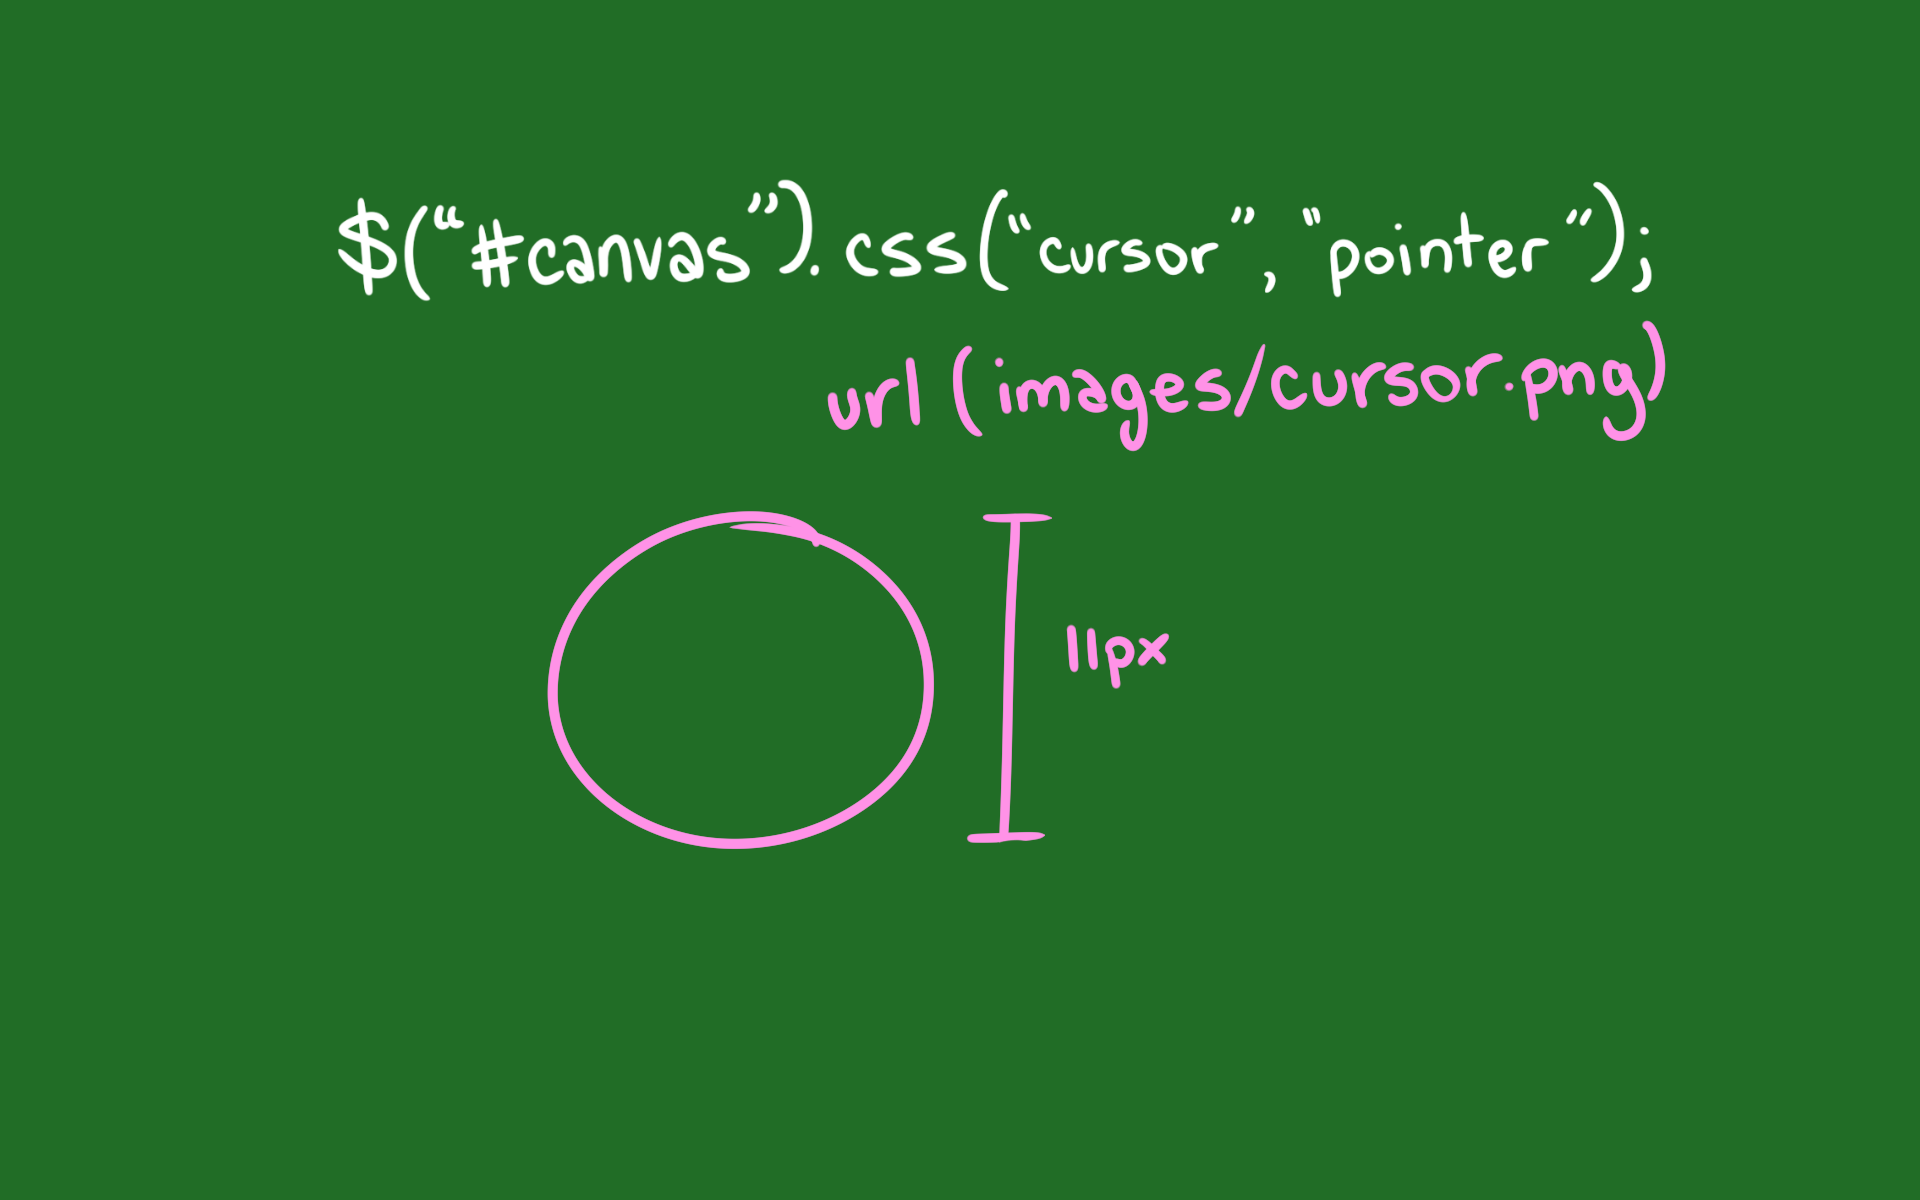 $(“#canvas”).css(“cursor”, “pointer”);
url (images/cursor.png)
11px